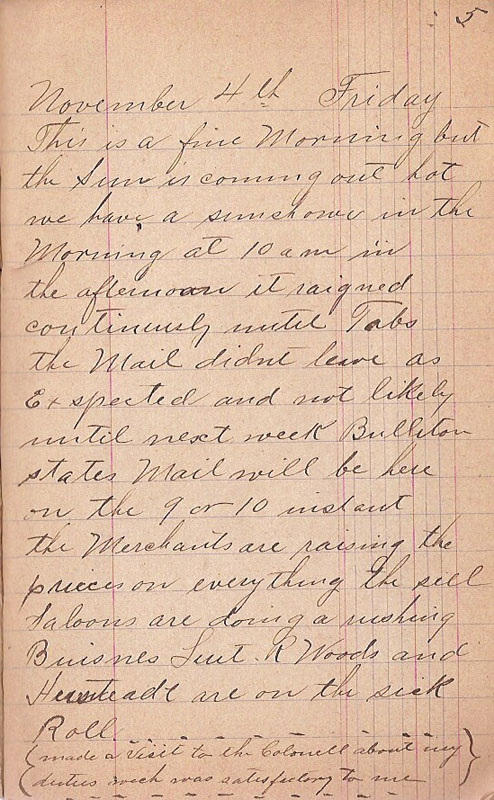 5
November 4th Friday
This is a fine Morning but
the Sun is coming out hot
we have a sunshowe in the
Morning at 10 am in
the afternoon it raigned
continuesly until Tabs
the Mail didnt leave as
Exspected and not likely
until next week Bulliton
states Mail will be here
on the 9 or 10 instant
the Merchants are raising the
prices on everything the sell
Saloons are doing a rushing
Buisnes Leut. R Woods and
are on the sick
Roll.
(made a visit to the Colonell about my)
(duties wech was satisfactory to me)